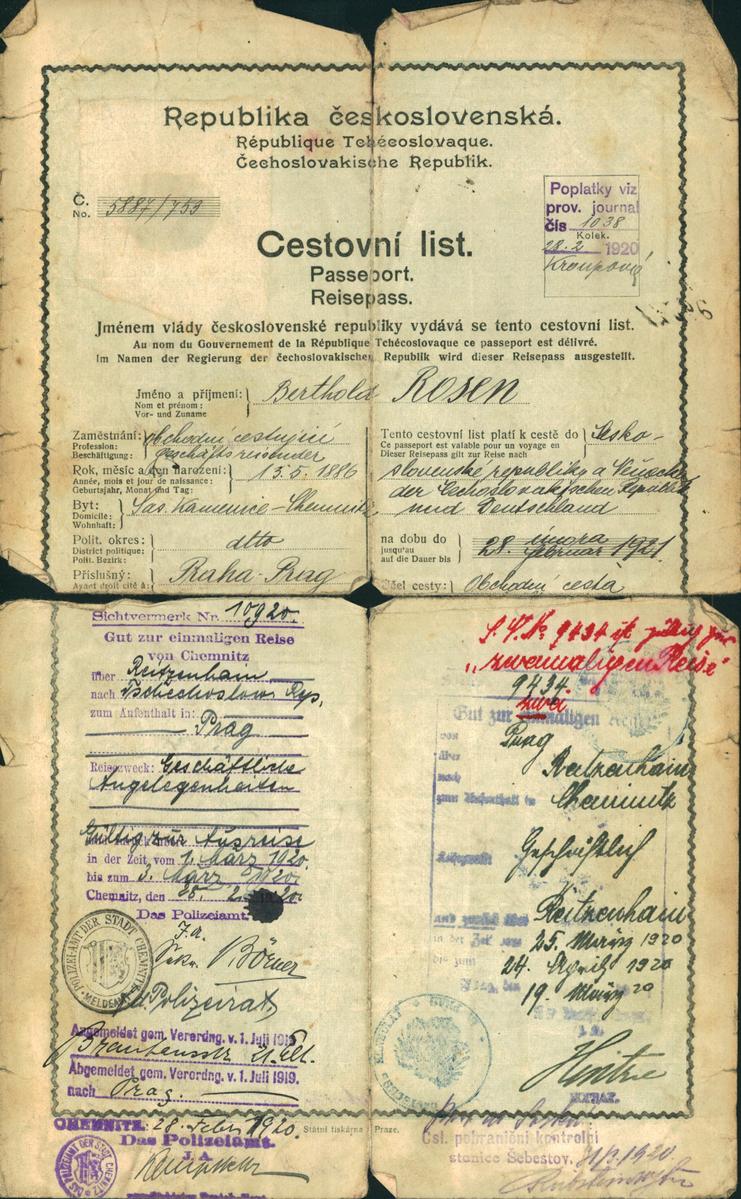 Republika československá.
République Tchécoslovaque.
Čechoslovakische Republik.
Č.
No. 5887/753
Poplatky viz
prov. journal
čís 1038
Kolek.
28.2 1920
Kroupová
Cestovní list.
Passeport.
Reisepass.
Jménem vlády československé republiky vydává se tento cestovní list.
Au nom du Gouvernement de la République Tchécoslovaque ce passeport est délivré.
Im Namen der Regierung der čechoslovakischen Republik wird dieser Reisepass ausgestellt.
Jméno a příjmení: Berthold Rosen
Nom et prénom:
Vor- und Zuname
Zaměstnání: obchodní cestující
Profession:
Beschäftigung: geschäftsreisender
Rok, měsíc a den narození: 13.5.1886
Année, mois et jour de naissance:
Geburtsjahr, Monat und Tag:
Byt: Sas. Kamenice - Chemnitz
Domicile:
Wohnhaft:
Polit. okres: dtto
District politique:
Polit. Bezirk:
Příslušný: Praha - Prag
Ayant droit cité à:
Tento cestovní list platí k cestě do Česko-
Ce passeport est valable pour un voyage en
Dieser Reisepass gilt zur Reise nach
slovenské republiky a Německa
der Čechoslovakischen Republik
und Deutschland
na dobu do
jusqu'au
auf die Dauer bis 28. února februar 1921
Účel cesty: Obchodní cesta
Sichtvermerk Nr. 10920.
Gut zur einmaligen Reise
von Chemnitz
über Reitzenhain
nach Tschechoslow. Rep.
zum Aufenthalt in:
Prag
Reisezweck: Geschäftliche
Angelegenheiten
Gültig zur Ausreise
in der Zeit, vom 1. März 1920
bis zum 3. März 1920
Chemnitz, den 28. 2. 1920
Das Polizeiamt.
J.A.
Sekr. Börner
POLIZEIAMT DER STADT CHEMNITZ
MELDEAMT
Polizeirat
Angemeldet gem. Verordng. v. 1. Juli 1919
21. Elt.
Abgemeldet gem. Verordng. v. 1. Juli 1919.
nach Prag.
CHEMNITZ, 28. Febr. 1920.
Das Polizeiamt.
J. A.
DAS POLIZEIAMT DER STADT CHEMNITZ
S.V. No 9434 ist gültig zur
"zweimaligen Reise"
9434.
zwei
Gut zur einmaligen Reise
von Prag
über Reitzenhain
nach
zum Aufenthalt in Chemnitz
Reisezweck Geschäftlich
und zurück über Reitzenhain
in der Zeit vom 25. März 1920
bis zum 24. April 1920
Prag, den 19. März 20
J. A.
Hintze
Státní tiskárna, Praze.
Čsl. pohraniční kontrolní
stanice Šebestov. 31/3.1920.